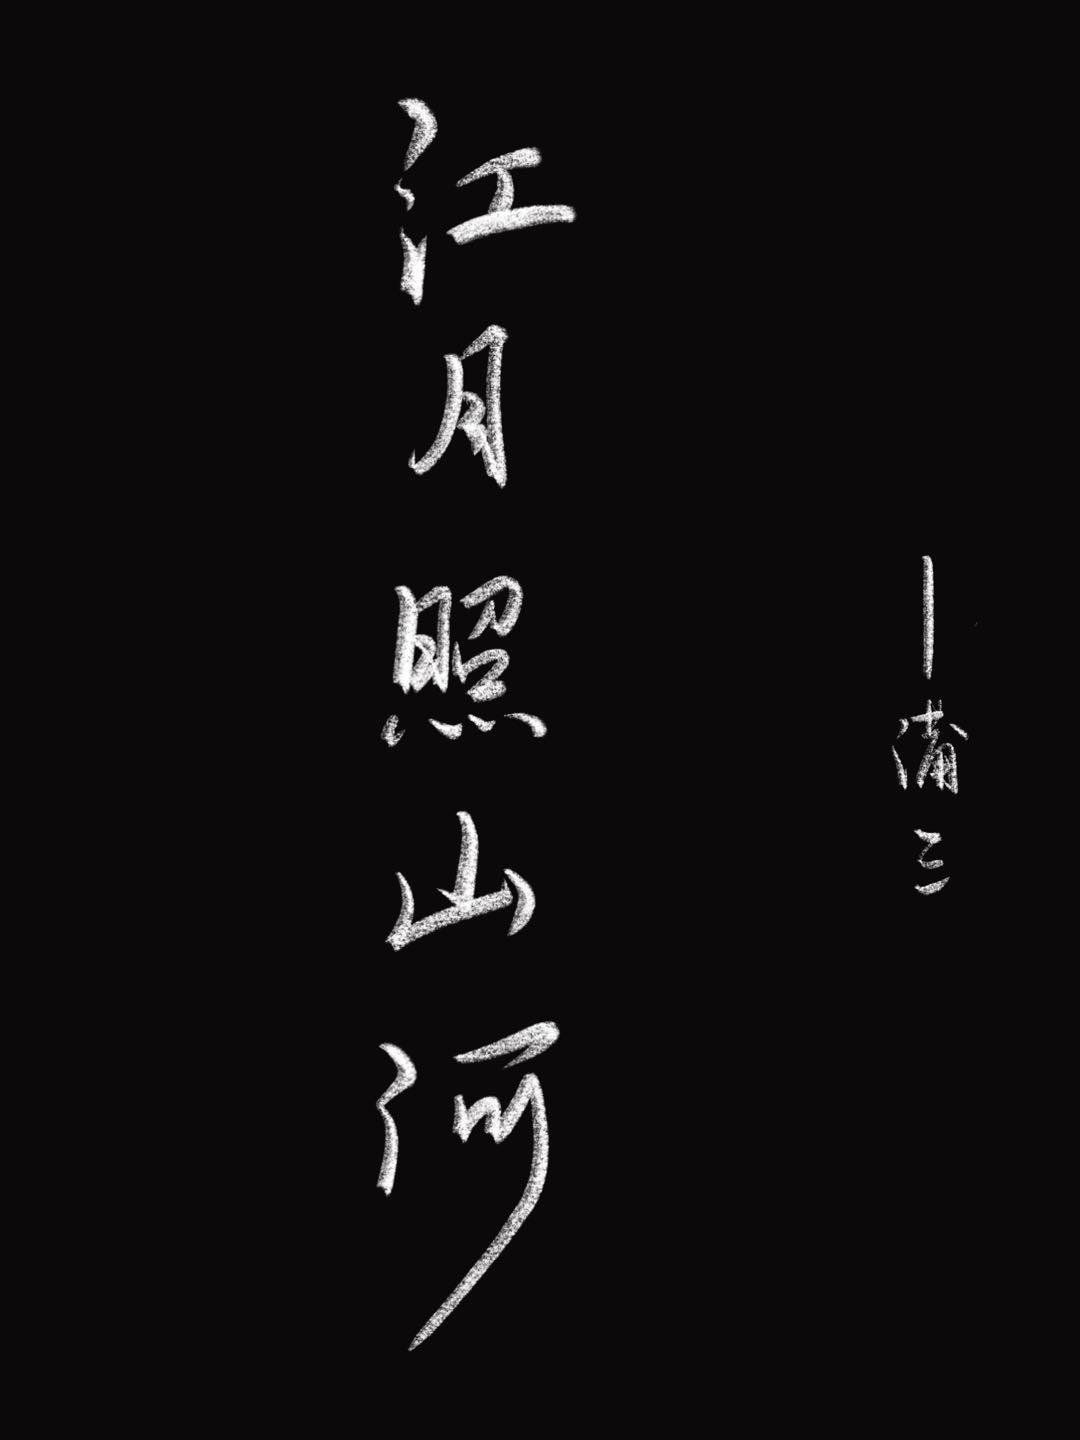 江月照山河
—蒲三